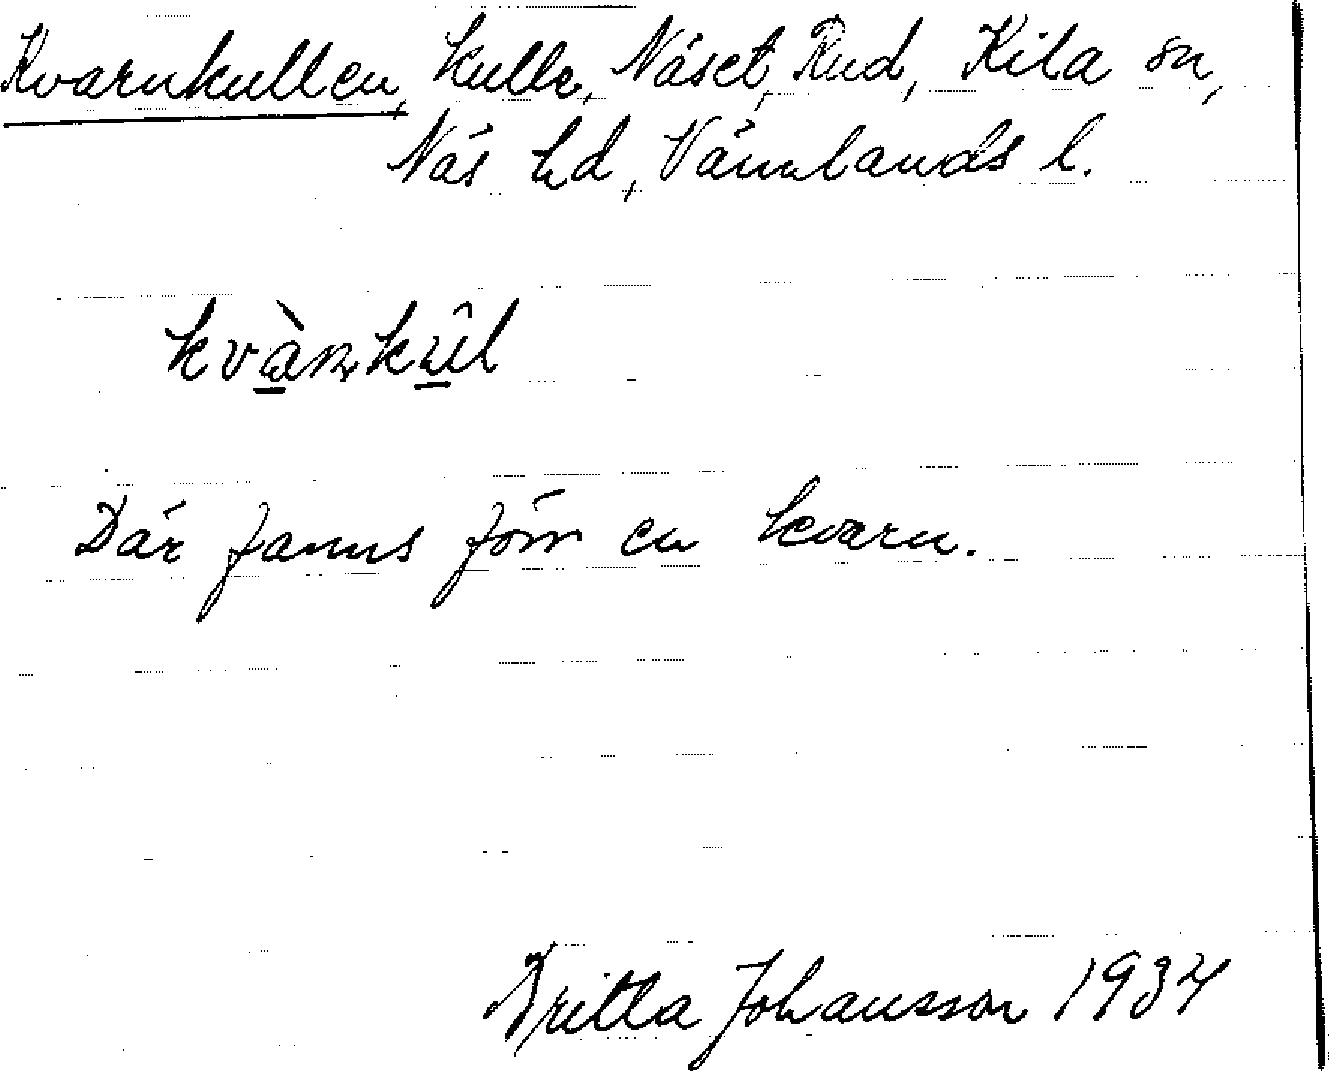 Kvarnkullen, kulle, Näset, Rud, Kila sn,
Näs hd, Värmlands l.
kvàn̲kûl
Där fanns förr en kvarn.
Britta Johansson 1934